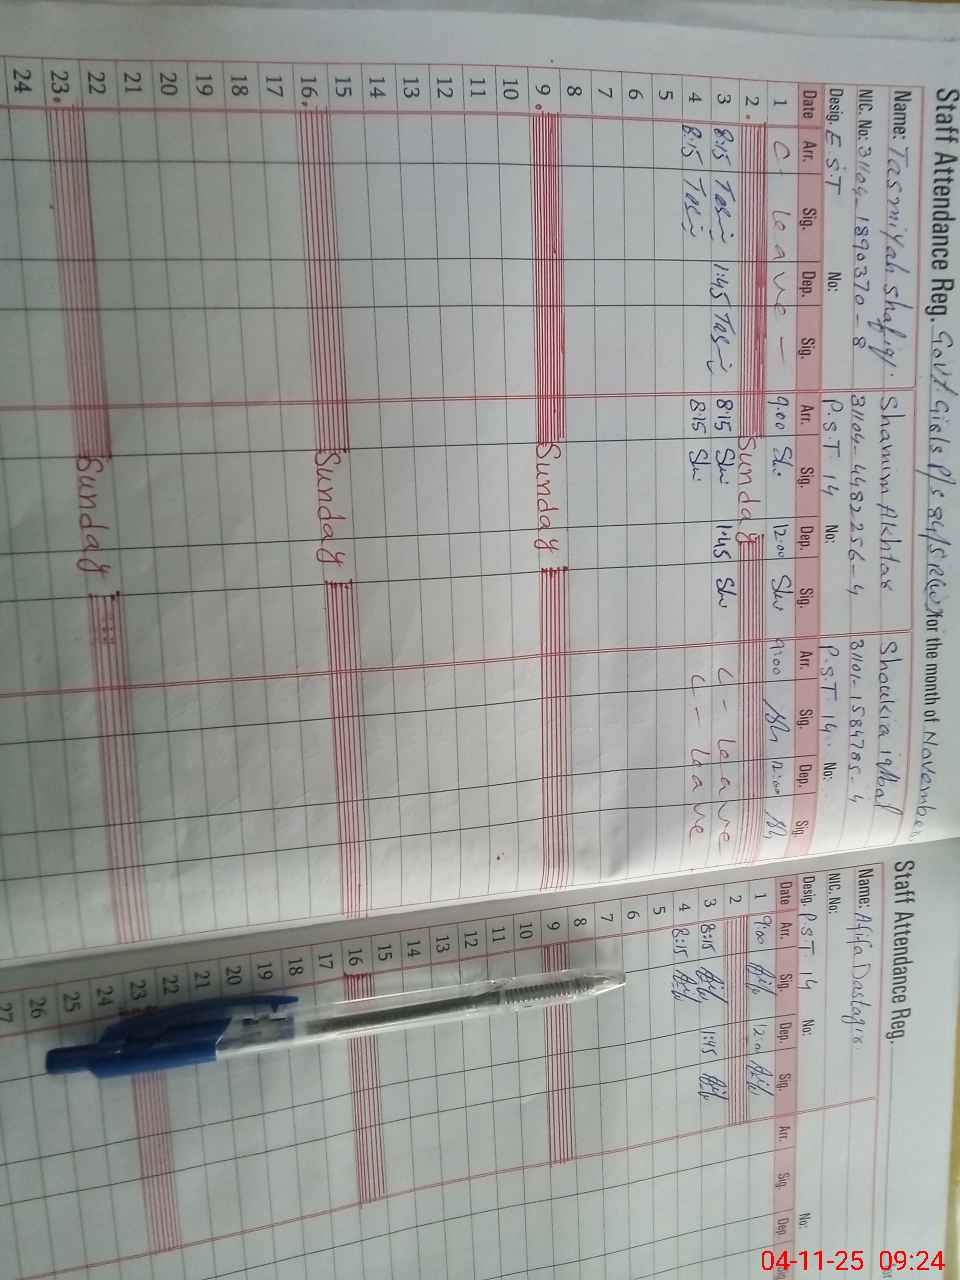 Staff Attendance Reg. Govt Girls P/S 84/5R(W) for the month of November
Name: Tasmiyah Shafiq. Shamim Akhtar Shoukia iqbal
NIC. No: 31104-1890370-8 31104-4482256-4 31101-1584785-4
Desig. E.S.T No: P.S.T 14 No: P.S.T 14. No:
Date Arr. Sig. Dep. Sig. Arr. Sig. Dep. Sig. Arr. Sig. Dep. Sig.
1 C- leave - 9:00 12:00 9:00 12:00
2. Sunday
3 8:15 1:45 8:15 1:45 C- leave
4 8:15 8:15 C- leave
5
6
7
8
9. Sunday
10
11
12
13
14
15
16. Sunday
17
18
19
20
21
22
23. Sunday
24
Staff Attendance Reg.
Name: Afifa Dastagir.
NIC. No:
Desig. P.S.T 14 No: No:
Date Arr. Sig. Dep. Sig. Arr. Sig. Dep.
1 9:00 12:0
2
3 8:15 1:45
4 8:15
5
6
7
8
9
10
11
12
13
14
15
16
17
18
19
20
21
22
23
24
25
26
27
04-11-25 09:24